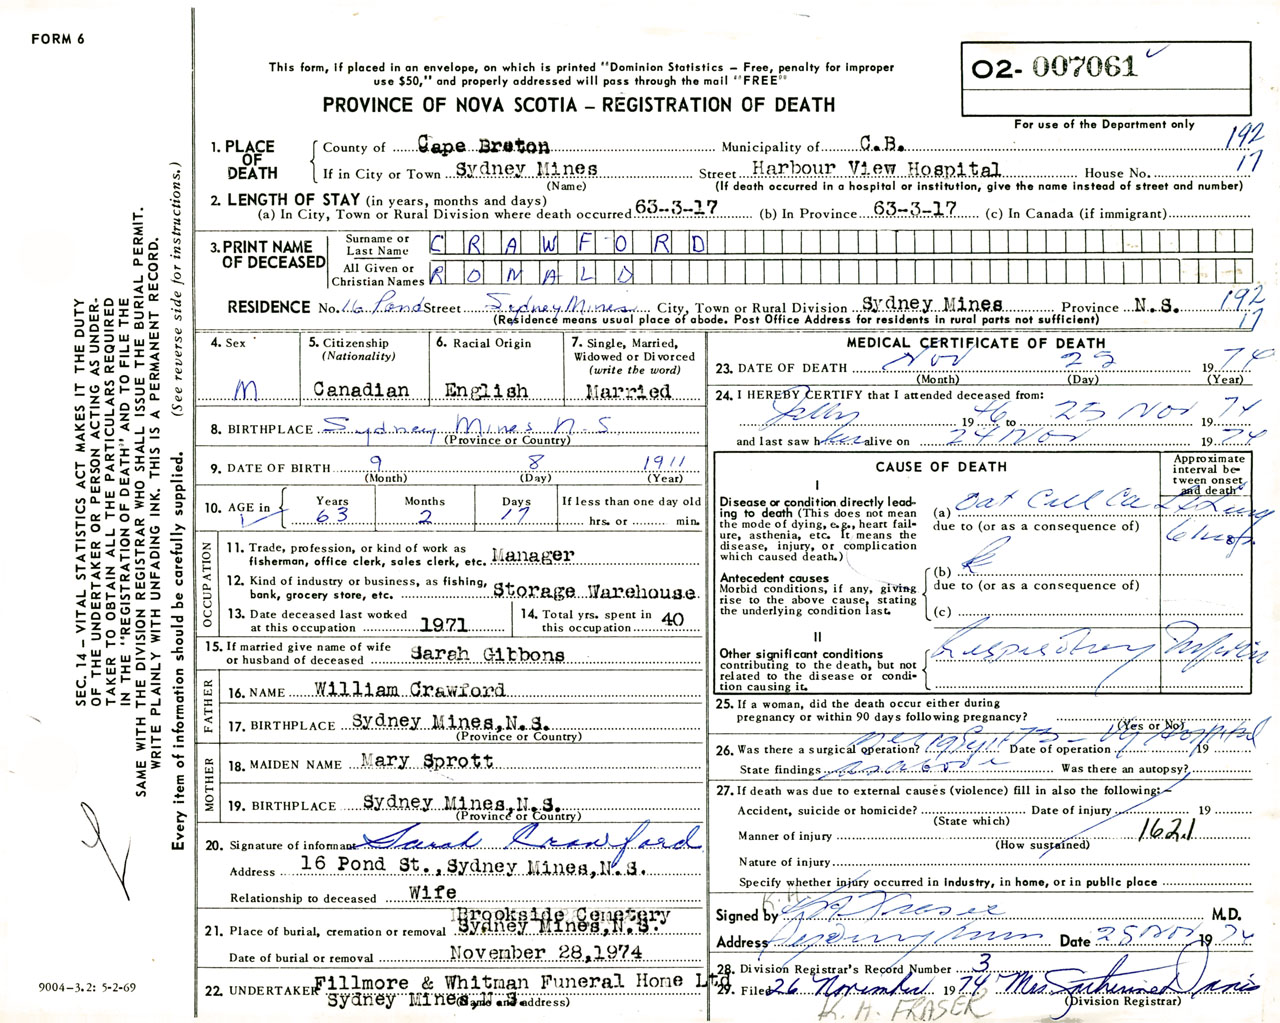 FORM 6
This form, if placed in an envelope, on which is printed "Dominion Statistics – Free, penalty for improper
use $50," and properly addressed will pass through the mail "FREE"
PROVINCE OF NOVA SCOTIA – REGISTRATION OF DEATH
O2- 007061
For use of the Department only
192
17
1. PLACE OF DEATH
County of Cape Breton Municipality of C.B.
If in City or Town Sydney Mines Street Harbour View Hospital House No.
(Name) (If death occurred in a hospital or institution, give the name instead of street and number)
2. LENGTH OF STAY (in years, months and days)
(a) In City, Town or Rural Division where death occurred 63-3-17 (b) In Province 63-3-17 (c) In Canada (if immigrant)
3. PRINT NAME OF DECEASED
Surname or Last Name CRAWFORD
All Given or Christian Names RONALD
RESIDENCE No. 16 Pond Street Sydney Mines City, Town or Rural Division Sydney Mines Province N.S.
(Residence means usual place of abode. Post Office Address for residents in rural parts not sufficient)
192
17
4. Sex M
5. Citizenship (Nationality) Canadian
6. Racial Origin English
7. Single, Married, Widowed or Divorced (write the word) Married
8. BIRTHPLACE Sydney Mines N.S.
(Province or Country)
9. DATE OF BIRTH 9 8 1911
(Month) (Day) (Year)
10. AGE in Years 63 Months 2 Days 17 If less than one day old hrs. or min.
OCCUPATION
11. Trade, profession, or kind of work as fisherman, office clerk, sales clerk, etc. Manager
12. Kind of industry or business, as fishing, bank, grocery store, etc. Storage Warehouse
13. Date deceased last worked at this occupation 1971
14. Total yrs. spent in this occupation 40
15. If married give name of wife or husband of deceased Sarah Gibbons
FATHER
16. NAME William Crawford
17. BIRTHPLACE Sydney Mines,N.S.
(Province or Country)
MOTHER
18. MAIDEN NAME Mary Sprott
19. BIRTHPLACE Sydney Mines,N.S.
(Province or Country)
20. Signature of informant Sarah Crawford
Address 16 Pond St.,Sydney Mines,N.S.
Relationship to deceased Wife
Brookside Cemetery
21. Place of burial, cremation or removal Sydney Mines,N.S.
Date of burial or removal November 28,1974
22. UNDERTAKER Fillmore & Whitman Funeral Home Ltd
Sydney Mines,N.S.
(Name and address)
MEDICAL CERTIFICATE OF DEATH
23. DATE OF DEATH Nov 25 1974
(Month) (Day) (Year)
24. I HEREBY CERTIFY that I attended deceased from:
1946 to 25 Nov 74
and last saw him alive on 24 Nov 1974
CAUSE OF DEATH
Approximate interval between onset and death
I
Disease or condition directly leading to death (This does not mean the mode of dying, e.g., heart failure, asthenia, etc. It means the disease, injury, or complication which caused death.)
(a) Oat Cell Ca of Lung
due to (or as a consequence of)
(b)
Antecedent causes
Morbid conditions, if any, giving rise to the above cause, stating the underlying condition last.
due to (or as a consequence of)
(c)
II
Other significant conditions contributing to the death, but not related to the disease or condition causing it.
Respiratory
25. If a woman, did the death occur either during
pregnancy or within 90 days following pregnancy?
(Yes or No)
26. Was there a surgical operation? Date of operation Hospital 19
State findings as above Was there an autopsy?
27. If death was due to external causes (violence) fill in also the following:–
Accident, suicide or homicide? Date of injury 19
(State which)
Manner of injury 162.1
(How sustained)
Nature of injury
Specify whether injury occurred in Industry, in home, or in public place
K.H.
Signed by K H Fraser M.D.
Address Sydney Mines Date 25 Nov 1974
28. Division Registrar's Record Number 3
29. Filed 26 November 1974 Mrs. Catherine Davis
(Division Registrar)
K. H. FRASER
SEC. 14 – VITAL STATISTICS ACT MAKES IT THE DUTY
OF THE UNDERTAKER OR PERSON ACTING AS UNDERTAKER
TO OBTAIN ALL THE PARTICULARS REQUIRED
IN THE "REGISTRATION OF DEATH" AND TO FILE THE
SAME WITH THE DIVISION REGISTRAR WHO SHALL ISSUE THE BURIAL PERMIT.
WRITE PLAINLY WITH UNFADING INK. THIS IS A PERMANENT RECORD.
Every item of information should be carefully supplied. (See reverse side for instructions.)
9004–3.2: 5-2-69